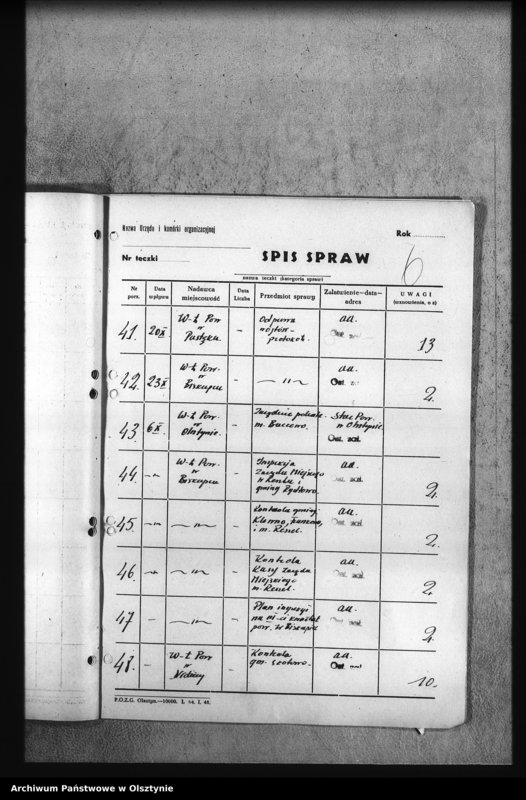 Nazwa Urzędu i komórki organizacyjnej
Rok
Nr teczki
SPIS SPRAW
6
nazwa teczki (kategoria spraw)
Nr porz.
Data wpływu
Nadawca miejscowość
Data Liczba
Przedmiot sprawy
Załatwienie—data—adres
UWAGI
(wznowienia, o z)
41. 20 X W-ł Pow w Pasłęku - Odprawa wójtów - protokół. aa. Ost. 13
42. 23 X W-ł Pow. w Biskupcu - — „ — aa. Ost. 2.
43. 6 X. W-ł Pow. w Olsztynie. - m. Barczewo. Star. Pow. w Olsztynie Ost. zał.
44. — „ — W-ł Pow. w Biskupcu - Inspekcja Zarządu Miejskiego i gminy aa. Ost. zał. 2.
45. — „ — — „ — - Kontrola gminy i m. Reszel. aa. Ost. zał. 2.
46. — „ — — „ — - Kontrola Kasy Zarządu Miejskiego m. Reszel. aa. Ost. zał. 2.
47 - — „ — - Plan inspekcji na III-ci kwartał pow. w Biskupcu aa. Ost. zał. 2.
48. - W-ł Pow w - Kontrola gm. aa. Ost. zał. 10.
P.O.Z.G. Olsztyn.—10000. I. 48.
Archiwum Państwowe w Olsztynie